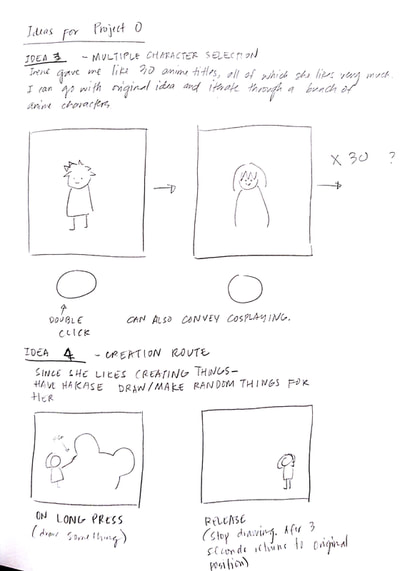 Ideas for Project 0
IDEA 3 - MULTIPLE CHARACTER SELECTION
Irene gave me like 30 anime titles, all of which she likes very much.
I can go with original idea and iterate through a bunch of
anime characters
X 30 ?
DOUBLE
CLICK
CAN ALSO CONVEY COSPLAYING.
IDEA 4 - CREATION ROUTE
SINCE SHE LIKES CREATING THINGS-
HAVE DRAW/MAKE RANDOM THINGS FOR
HER
ON LONG PRESS
(draw something)
RELEASE
(stop drawing. After 3
seconds returns to original
position)